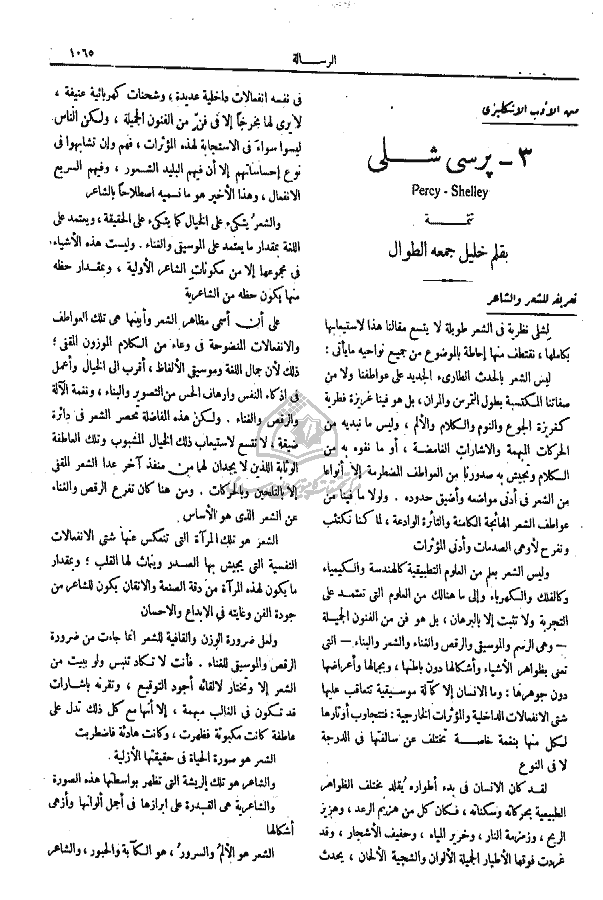 ١٠٦٥
الرسالة
من الأدب الانكليزي
٣ - پرسي شلي
Percy - Shelley
تتمة
بقلم خليل جمعه الطوال
تعريفه للشعر والشاعر
لِشلي نظرية في الشعر طويلة لا يتسع مقالنا هذا لاستيعابها
بكاملها، نقتطف منها إحاطة بالموضوع من جميع نواحيه مايأتى:
ليس الشعر بالحدث الطارىء الجديد على عواطفنا ولا من
صفاتنا المكتسبة بطول التمرس والمران، بل هو فينا غريزة فطرية
كغريزة الجوع والنوم والكلام والألم، وليس ما نبديه من
الحركات المبهمة والاشارات الغامضة، أو ما نفوه به من
الكلام وتجيش به صدورنا من العواطف المضطرمة إلا أنواعا
من الشعر في أدنى مواضعه وأضيق حدوده. ولولا ما فينا من
عواطف الشعر الهائجة الكامنة والثائرة الوادعة، لما كنا نكتئب
ونفرح لأوهى الصدمات وأدنى المؤثرات
وليس الشعر بعلم من العلوم التطبيقية كالهندسة والكيمياء
وكالفلك والكهرباء وإلى ما هنالك من العلوم التي تعتمد على
التجربة ولا تثبت إلا بالبرهان، بل هو فن من الفنون الجميلة
— وهى الرسم والموسيقى والرقص والغناء والشعر والبناء — التي
تعنى بظواهر الأشياء وأشكالها دون باطنها، وبجمالها وأعراضها
دون جوهرها؛ وما الانسان إلا كآلة موسيقية تتعاقب عليها
شتى الانفعالات الداخلية والمؤثرات الخارجية؛ فتتجاوب أوتارها
لكل منها بنغمة خاصة تختلف عن سالفتها في الدرجة
لا في النوع
لقد كان الانسان في بدء أطواره يُقلد مختلف الظواهر
الطبيعية بحركاته وسكناته، فكان كل من هزيم الرعد، وهزيز
الريح، وزمزمة النار، وخرير المياه، وحفيف الأشجار، وقد
غردت فوقها الأطيار الجميلة الألوان والشجية الألحان، يحدث
في نفسه انفعالات داخلية عديدة، وشحنات كهربائية عنيفة،
لا يرى لها مخرجاً إلا في فن من الفنون الجميلة، ولكن الناس
ليسوا سواءً في الاستجابة لهذه المؤثرات، فهم وإن تشابهوا في
نوع إحساساتهم إلا أن فيهم البليد الشعور، وفيهم السريع
الانفعال، وهذا الأخير هو ما نسميه اصطلاحاً بالشاعر
والشعر يتكىء على الخيال كما يتكىء على الحقيقة، ويعتمد على
اللغة بمقدار ما يعتمد على الموسيقى والغناء. وليست هذه الأشياء
في مجموعها إلا من مكونات الشاعر الأولية، وبمقدار حظه
منها يكون حظه من الشاعرية
على أن أسمى مظاهر الشعر وأبينها هي تلك العواطف
والانفعالات المنضوحة في وعاء من الكلام الموزون المقفى؛
ذلك لأن جمال اللغة وموسيقى الألفاظ، أقرب الى الخيال وأعمل
في إذكاء النفس وارهاف الحس من التصوير والبناء، ونغمة الآلة
والرقص والغناء. ولكن هذه الفاضلة تحصر الشعر في دائرة
ضيقة، لا تتسع لاستيعاب ذلك الخيال المشبوب وتلك العاطفة
الوثابة اللذين لا يجدان لهما من منفذ آخر عدا الشعر المقفى
إلا بالتلحين وبالحركات. ومن هنا كان تفرع الرقص والغناء
عن الشعر الذى هو الأساس
الشعر هو تلك المرآة التي تنعكس عنها شتى الانفعالات
النفسية التي يجيش بها الصدر وينفث لها القلب؛ وبمقدار
ما يكون لهذه المرآة من دقة الصنعة والاتقان يكون للشاعر من
جودة الفن وغايته في الابداع والاحسان
ولعل ضرورة الوزن والقافية للشعر انما جاءت من ضرورة
الرقص والموسيقى للغناء. فأنت لا تكاد تنبس ولو ببيت من
الشعر إلا وتختار لالقائه أجود التوقيع، وتقرنه باشارات
قد تكون في الغالب مبهمة، إلا أنها مع كل ذلك تدل على
عاطفة كانت مكبوتة فظهرت، وكانت هادئة فاضطربت
الشعر هو صورة الحياة في حقيقتها الأزلية.
والشاعر هو تلك الريشة التي تظهر بواسطتها هذه الصورة
والشاعرية هي القدرة على ابرازها في أجمل ألوانها وأزهى
أشكالها
الشعر هو الألم والسرور، هو الكآبة والحبور، والشاعر